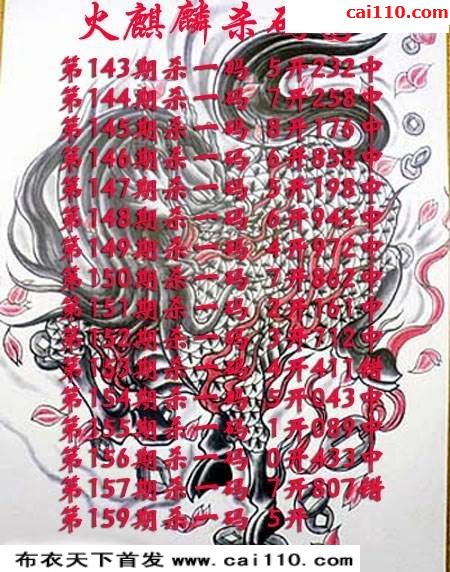 cai110.com
火麒麟杀码
第143期杀一码 5开232中
第144期杀一码 7开258中
第145期杀一码 8开176中
第146期杀一码 6开858中
第147期杀一码 5开198中
第148期杀一码 6开945中
第149期杀一码 4开972中
第150期杀一码 7开862中
第151期杀一码 2开161中
第152期杀一码 3开712中
第153期杀一码 4开411错
第154期杀一码 5开043中
第155期杀一码 1开089中
第156期杀一码 0开433中
第157期杀一码 7开807错
第159期杀一码 5开
布衣天下首发 www.cai110.com